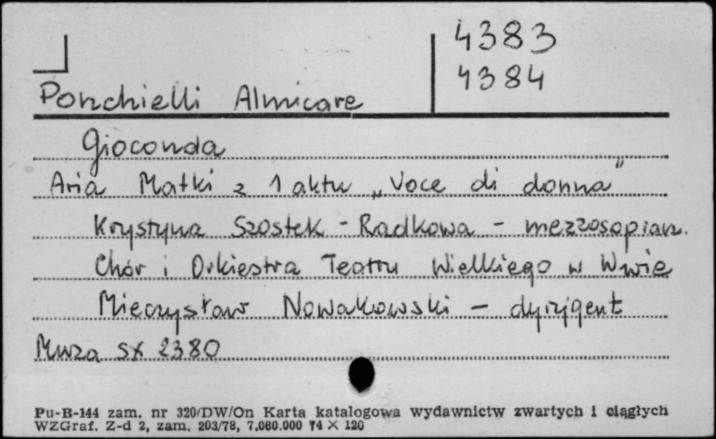 4383
4384
Ponchielli Almicare
Gioconda
Aria Matki z 1 aktu „Voce di donna"
Krystyna Szostek-Radkowa - mezzosopran.
Chór i Orkiestra Teatru Wielkiego w Wwie
Mieczysław Nowakowski - dyrygent
Muza SX 2380
Pu-B-144 zam. nr 320/DW/On Karta katalogowa wydawnictw zwartych i ciągłych
WZGraf. Z-d 2, zam. 203/78, 7.060.000 74 X 120